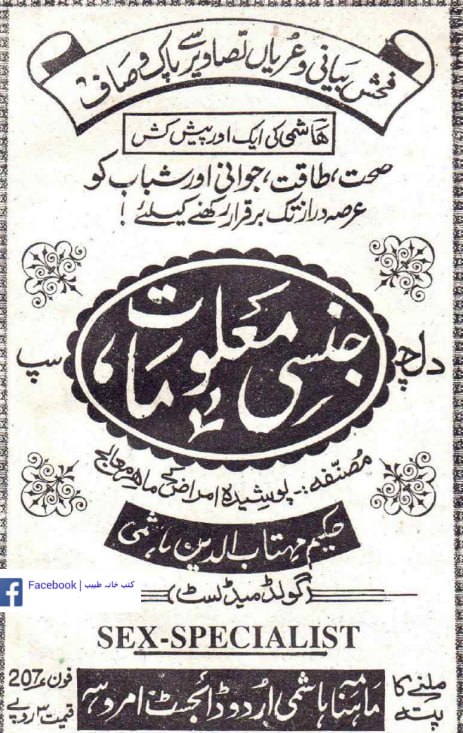 فحش بیانی و عریاں تصاویر سے پاک و صاف
ھاشمی کی ایک اور پیش کش
صحت، طاقت، جوانی اور شباب کو
عرصہ دراز تک برقرار رکھنے کیلئے!
دلچسپ
جنسی معلومات
مصنفہ:- پوشیدہ امراض کے ماہر معالج
حکیم مہتاب الدین ہاشمی
(گولڈ میڈلسٹ)
Facebook | کتب خانہ طبیب
SEX-SPECIALIST
ملنے کا پتہ
ماہنامہ ہاشمی اردو ڈائجسٹ امروہہ
فون 207
قیمت ۳ روپے